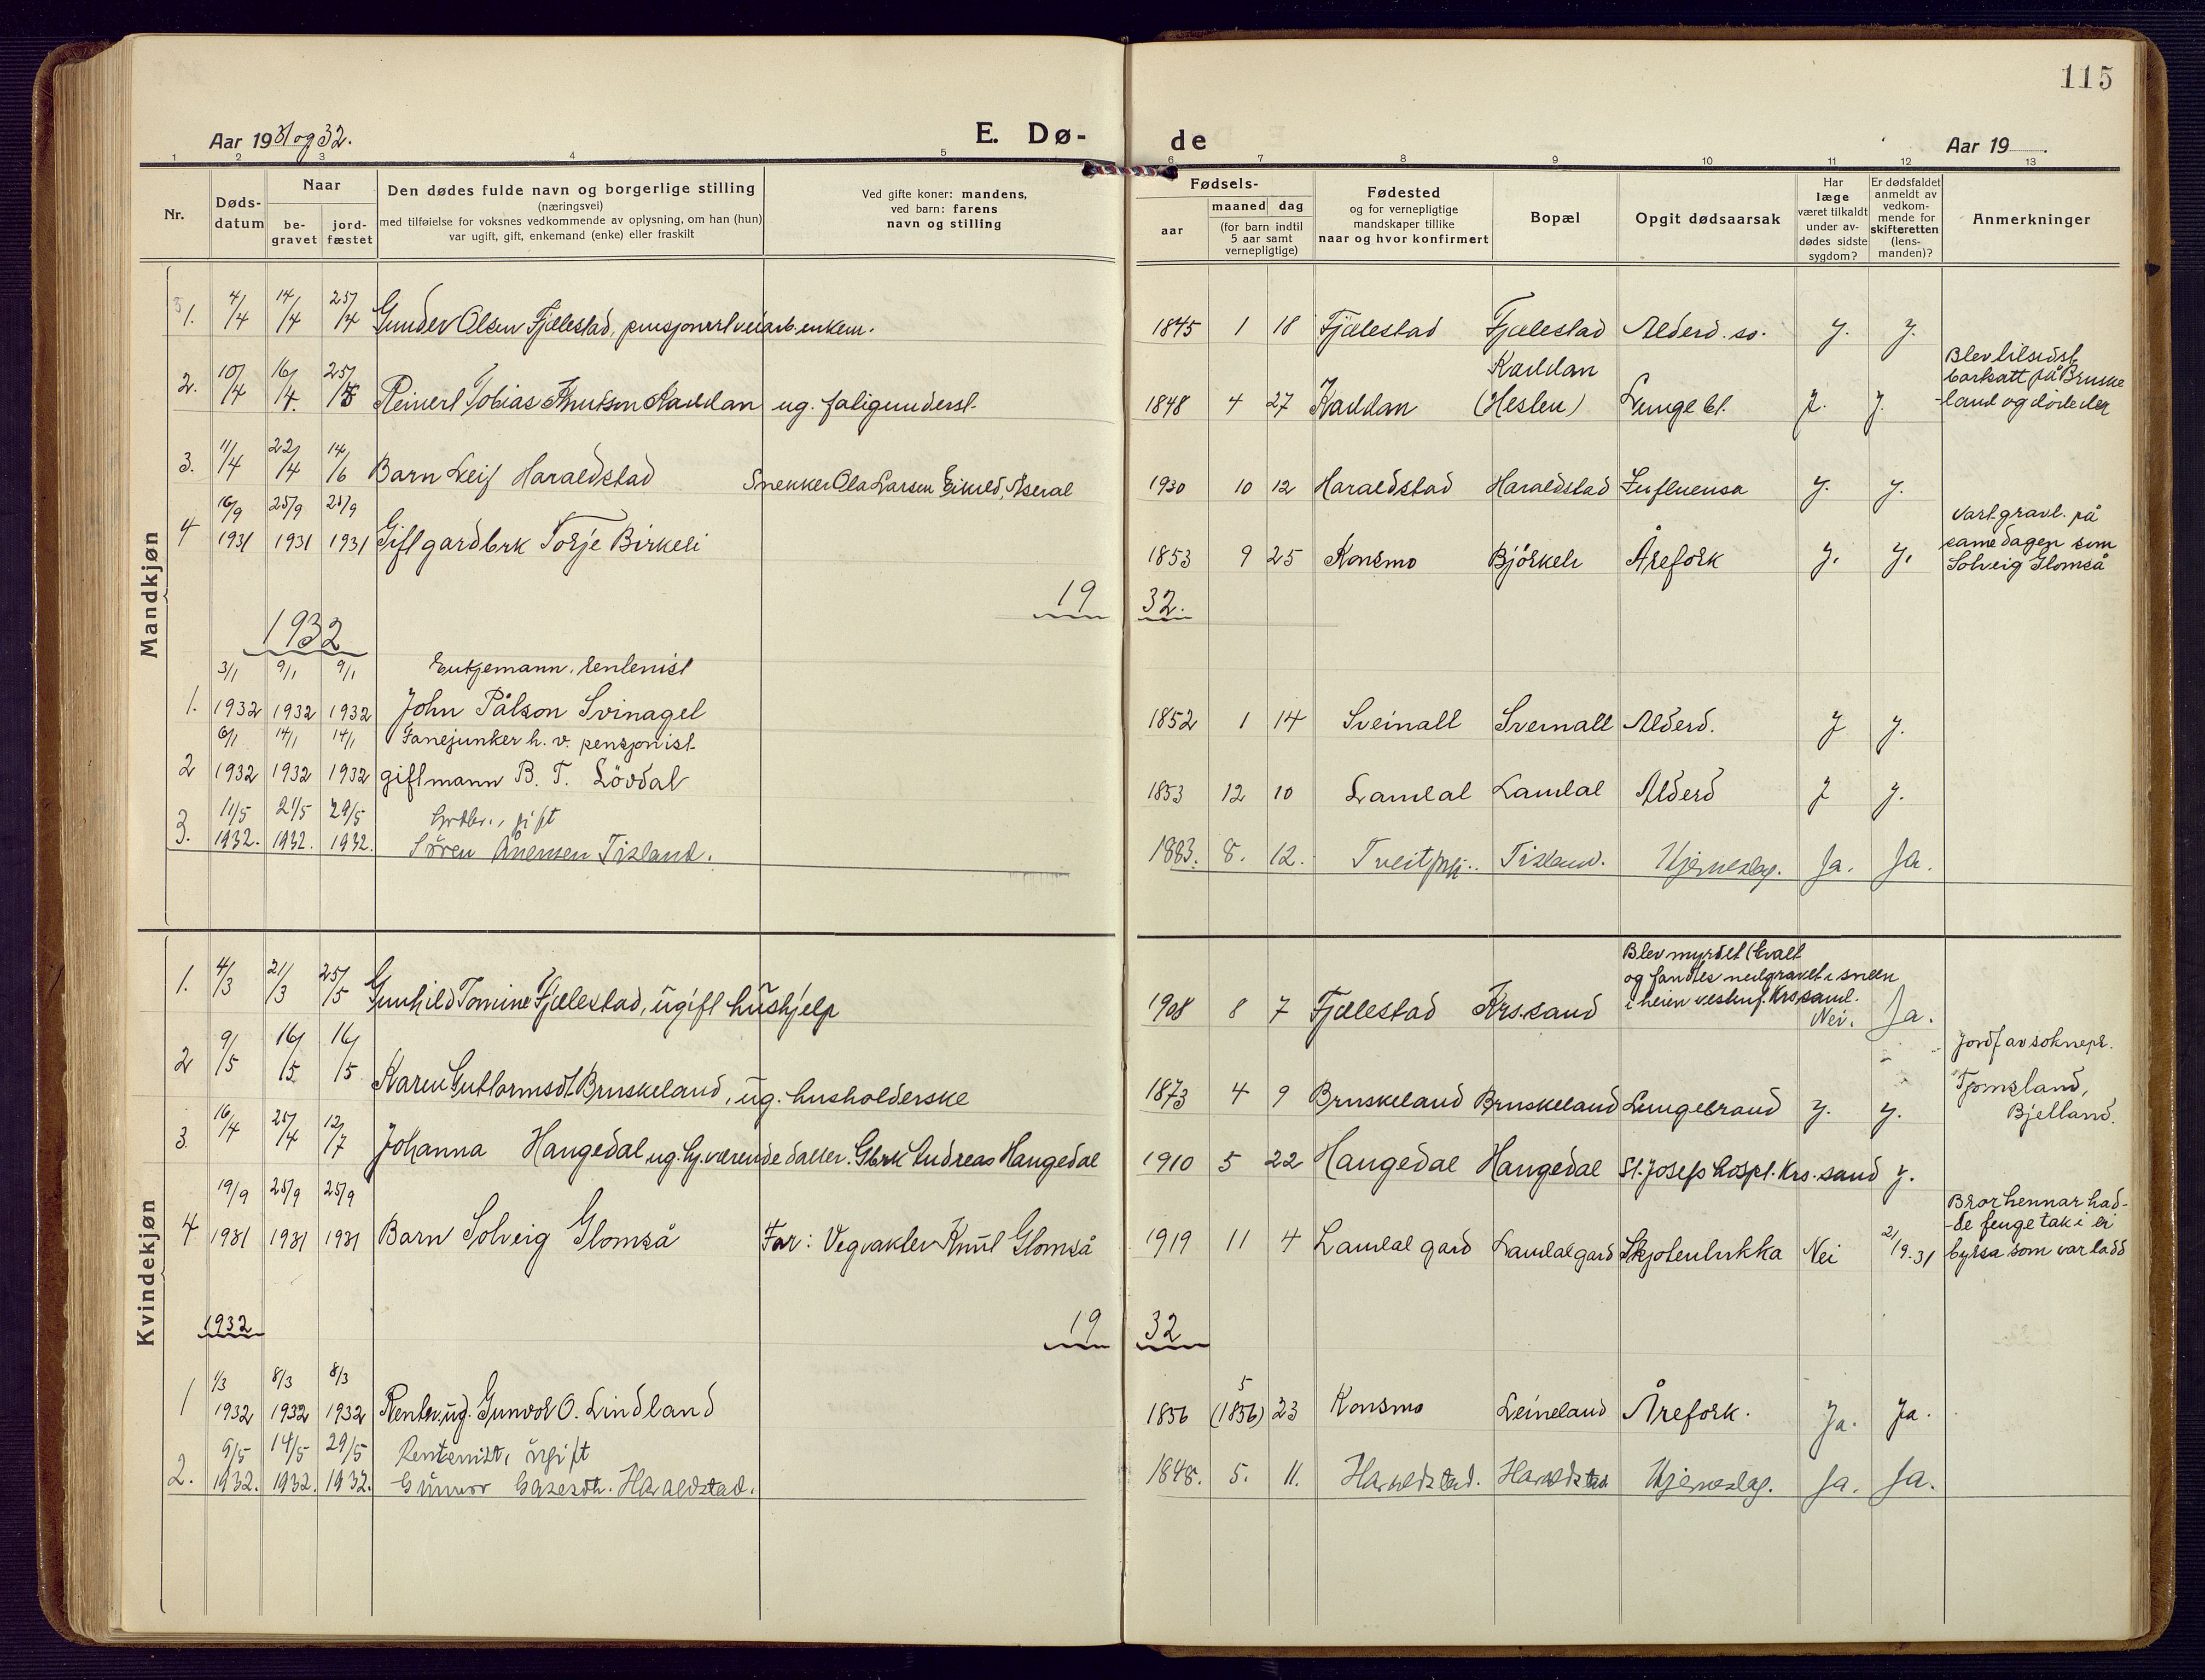 115
Aar 1931 og 32.
E. Dø-
de
Aar 19
1 2 3 4 5 6 7 8 9 10 11 12 13
Nr.
Døds-
datum
Naar
be-
gravet
jord-
fæstet
Den dødes fulde navn og borgerlige stilling
(næringsvei)
med tilføielse for voksnes vedkommende av oplysning, om han (hun)
var ugift, gift, enkemand (enke) eller fraskilt
Ved gifte koner: mandens,
ved barn: farens
navn og stilling
Fødsels-
aar
maaned dag
(for barn indtil
5 aar samt
vernepligtige)
Fødested
og for vernepligtige
mandskaper tillike
naar og hvor konfirmert
Bopæl
Opgit dødsaarsak
Har
læge
været tilkaldt
under av-
dødes sidste
sygdom?
Er dødsfaldet
anmeldt av
vedkom-
mende for
skifteretten
(lens-
manden)?
Anmerkninger
Mandkjøn
1. 4/4 14/4 25/4 Gunder Olsen Fjællestad, pensjonert veiarb. enkem. 1845 1 18 Fjællestad Fjællestad Alderd. so. J. J.
2. 10/4 16/4 25/5 Reinert Tobias Knutson Kaddan ug. fatigunderst. 1848 4 27 Kaddan Kaddan (Heslen) Lungebt. J. J. Blev tilsidst
bortsatt på Bruske
-land og døde der
3. 11/4 22/4 14/6 Barn Leif Haraldstad Snekker Ola Larsen Eikeld, Åseral 1930 10 12 Haraldstad Haraldstad Influensa J. J.
4 16/9 1931 25/9 1931 25/9 1931 Gift gardbrk Torje Birkeli 1853 9 25 Konsmo Bjørkeli Årefork J. J. Vart gravl. på
same dagen som
Solveig Glomså
19 32.
1932
1. 3/1 1932 9/1 1932 9/1 1932 Enkjemann, rentenist
John Pålson Svinagel 1852 1 14 Sveinall Sveinall Alderd. J J.
2 6/1 1932 14/1 1932 14/1 1932 Fanejunker h. v. pensjonist
gift mann B. T. Lövdal 1853 12 10 Laudal Laudal Alderd J J.
3. 11/5 1932. 21/5 1932. 29/5 1932. Grdbr., gift
Sören Ånensen Tisland. 1883. 8. 12. Tveit Tisland. Hjerneslag. Ja. Ja.
Kvindekjøn
1. 4/3 21/3 25/5 Gunhild Tomine Fjællestad, ugift hushjelp 1908 8 7 Fjællestad Krs.sand Blev myrdet (kvalt
og fandtes nedgravet i sneen
i heien vestenf. Krs.sand. Nei. Ja.
2 9/5 16/5 16/5 Karen Guttormsdt. Bruskeland, ug. husholderske 1873 4 9 Bruskeland Bruskeland Lungebrand J. J. Jordf av soknepr.
Tjomsland,
Bjelland.
3. 16/4 25/4 12/7 Johanna Haugedal ug. hj.værende datter. Gbrk Andreas Haugedal 1910 5 22 Haugedal Haugedal St. Josefs hospt. Krs.sand J.
4 19/9 1931 25/9 1931 25/9 1931 Barn Solveig Glomså Far: Vegvakter Knut Glomså 1919 11 4 Laudal gard Laudal gard Skjotenlukka Nei 21/9.31 Bror hennar had-
-de fenge tak i ei
byrsa som var ladd
1932
19 32
1 1/3 1932 8/3 1932 8/3 1932 Rentn. ug. Gunvor O. Lindland 1856 5 (1856) 23 Konsmo Leineland Årefork. Ja. Ja.
2. 5/5 1932. 14/5 1932. 29/5 1932. Rentenist, ugift
Gunvor Gasesdt. Haraldstad. 1848. 5. 11. Haraldstad. Haraldstad Hjerneslag. Ja. Ja.